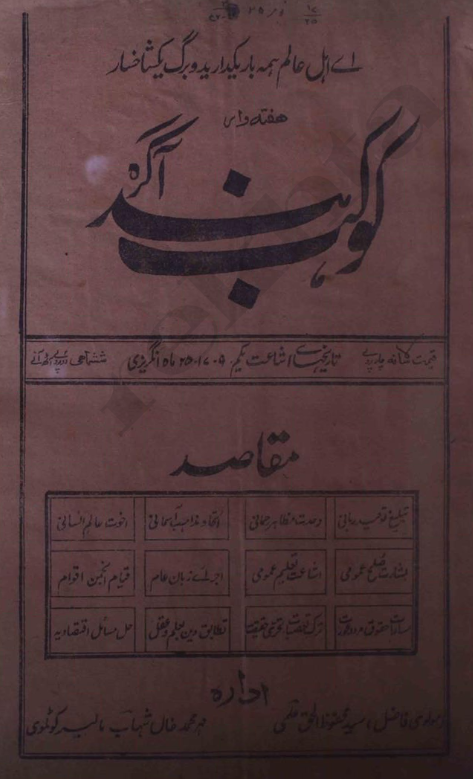 اے اہل عالم ہمہ بار یکدارید و برگ یکشاخسار
ہفتہ وار
کوکب ہند آگرہ
تاریخہائے اشاعت یکم، ۹، ۱۷، ۲۵ ماہ انگریزی ششماہی
مقاصد
تبلیغ توحید ربانی وحدت مظاہر رحمانی اتحاد مذاہب آسمانی اخوت عالم انسانی
بشارت صلح عمومی اشاعت تعلیم عمومی اجرائے زبان عام قیام انجمن اقوام
مساوات حقوق مرد و عورت ترک تعصبات تحری حقیقت تطابق دین علم و عقل حل مسائل اقتصادیہ
ادارہ
مولوی فاضل سید محفوظ الحق علمی
مہر محمد خاں شہاب مالیر کوٹلوی